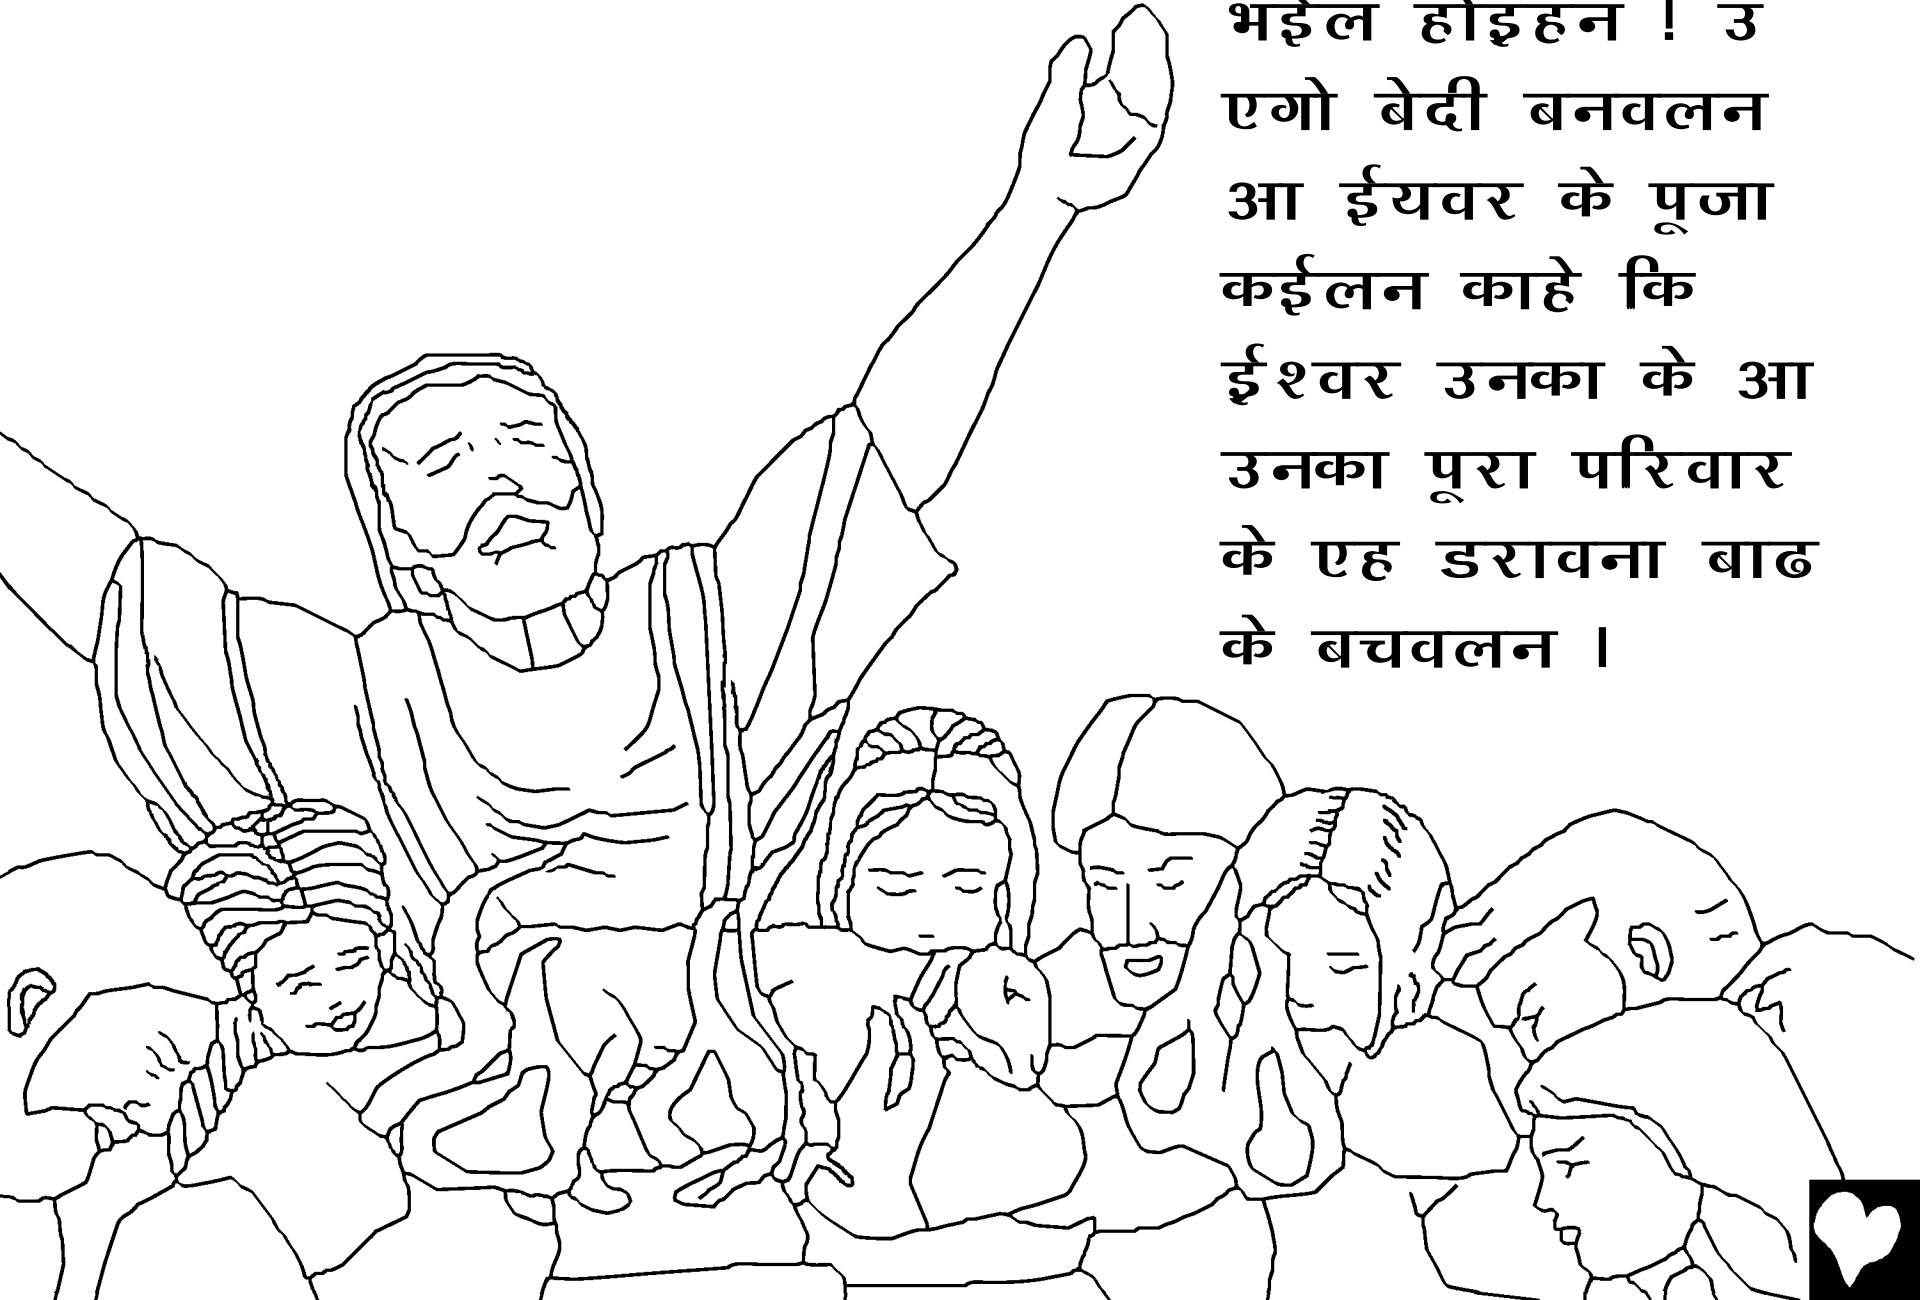 भईल होइहन ! उ
एगो बेदी बनवलन
आ ईयवर के पूजा
कईलन काहे कि
ईश्वर उनका के आ
उनका पूरा परिवार
के एह डरावना बाढ
के बचवलन ।